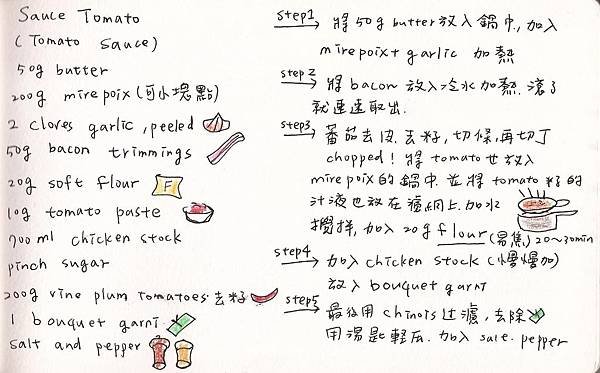 Sauce Tomato
(Tomato Sauce)
50g butter
200g mirepoix (可小塊點)
2 cloves garlic, peeled
50g bacon trimmings
20g soft flour F
10g tomato paste
700 ml chicken stock
pinch sugar
200g vine plum tomatoes 去籽
1 bouquet garni
salt and pepper
step1 將50g butter放入鍋中, 加入
mirepoix+ garlic 加熱
step2 將bacon 放入冷水加熱. 滾了
就速速取出.
step3 番茄去皮. 去籽, 切條, 再切丁
chopped! 將 tomato 也放入
mirepoix的鍋中. 並將tomato籽的
汁液也放在濾網上. 加水
攪拌, 加入 20g flour (易焦) 20~30min
step4 加入 chicken stock (慢慢加)
放入 bouquet garni
step5 最後用 chinois 过濾, 去除
用湯匙輕压. 加入 salt. pepper